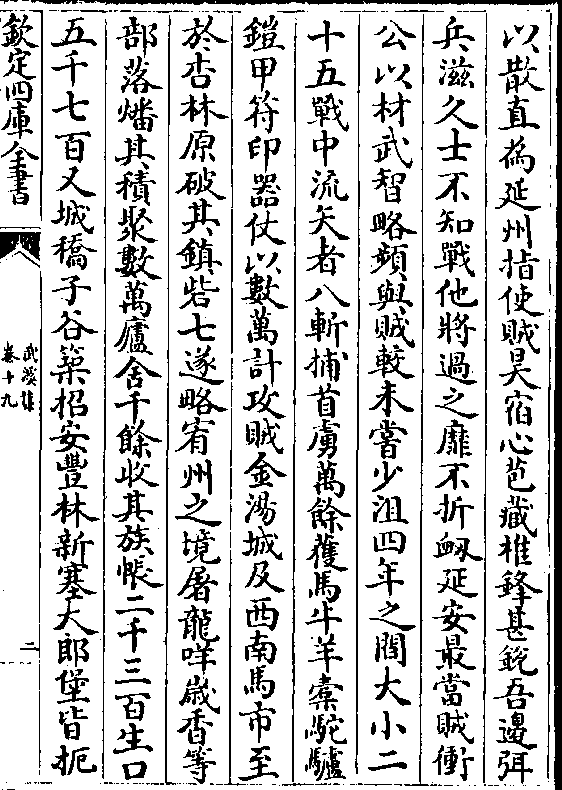 以散直為延州指使賊昊宿心苞藏椎鋒甚銳吾邊弭
兵滋久士不知戰他將過之靡不折衂延安最當賊衝
公以材武智略頻與賊較未嘗少沮四年之閒大小二
十五戰中流矢者八斬捕首虜萬餘獲馬牛羊橐駝驢
鎧甲符印器仗以數萬計攻賊金湯城及西南馬市至
於杏林原破其鎮砦七遂略宥州之境屠龍咩歲香等
部落燔其積聚數萬廬舍千餘收其族帳二千三百生口
五千七百又城橋子谷築招安豐林新塞大郎堡皆扼
欽定四庫全書
武溪集
卷十九
二